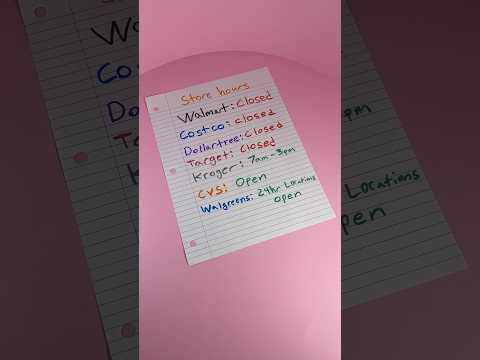 Store hours
Walmart: Closed
Costco: Closed
Dollartree: Closed
Target: Closed
Kroger: 7am-3pm
CVS: Open
Walgreens: 24hr Locations
open